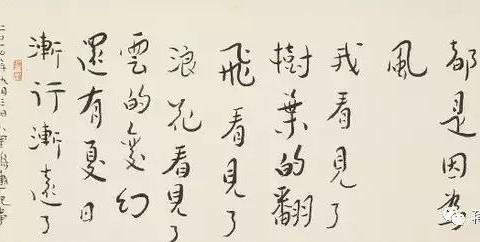 都是因為
風
我看見了
樹葉的翻
飛看見了
浪花看見了
雲的變幻
還有夏日
漸行漸遠了